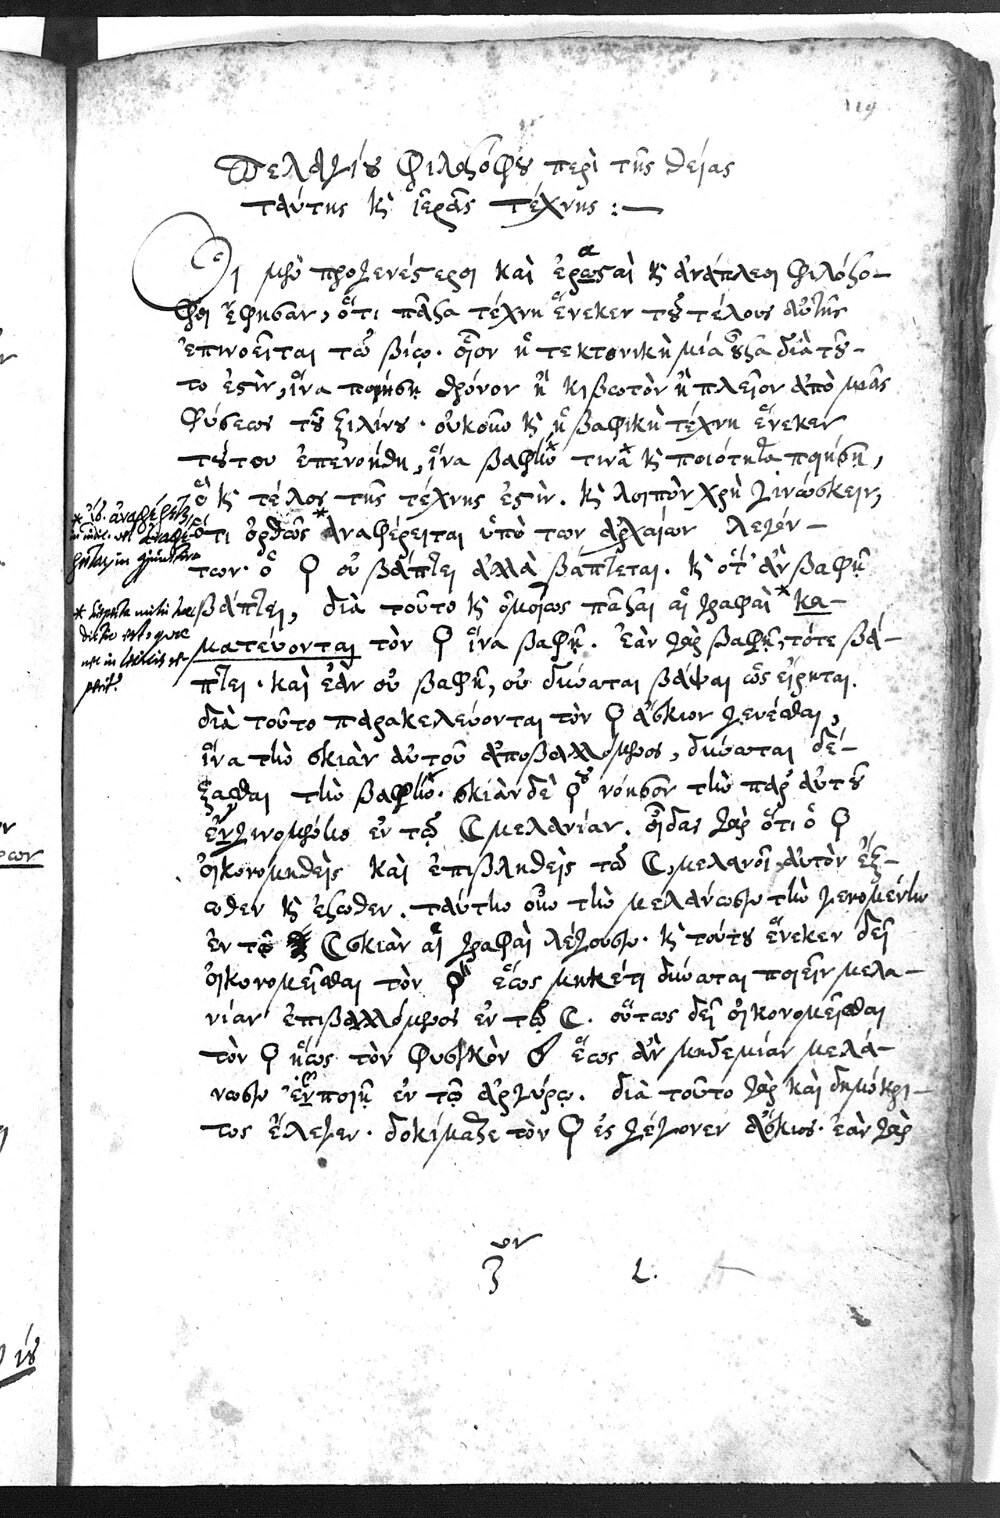 119
Πελαγίου φιλοσόφου περὶ τῆς θείας
ταύτης κὶ ἱερᾶς τέχνης :—
Οἱ μὲν προγενέστεροι καὶ ἐρασταὶ κὶ ἀνάπλεοι φιλόσο-
φοι ἔφησαν, ὅτι πᾶσα τέχνη ἕνεκεν τοῦ τέλους αὐτῆς
ἐπινοεῖται τῷ βίῳ. οἷον ἡ τεκτονικὴ μία οὖσα διὰ τοῦ-
το ἐστὶν, ἵνα ποιήσῃ θρόνον ἢ κιβωτὸν ἢ πλεῖον ἀπὸ μιᾶς
φύσεως τοῦ ξυλίνου. οὐκοῦν κὶ ἡ βαφικὴ τέχνη ἕνεκεν
τούτου ἐπενοήθη, ἵνα βαφὴν* τινὰ* κὶ ποιότητα ποιήσῃ,
ὃ κὶ τέλος τῆς τέχνης ἐστὶν. κὶ λοιπὸν χρὴ γινώσκειν,
ὅτι ὀρθῶς *ἀναφέρεται ὑπὸ των ἀρχαίων λεγόν-
των· ὁ ♀ οὐ βάπτει ἀλλὰ βάπτεται. κὶ ὅτ' ἂν βαφῇ
βάπτει, διὰ τοῦτο κὶ ὁμοίως πᾶσαι αἱ γραφαὶ *κα-
ματεύονται τὸν ♀ ἵνα βαφῇ. ἐὰν γὰρ βαφῇ, τότε βά-
πτει. καὶ ἐὰν οὐ βαφῇ, οὐ δύναται βάψαι ὡς εἴρηται.
διὰ τοῦτο παρακελεύονται τὸν ♀ ἄσκιον γενέσθαι,
ἵνα τὴν σκιὰν αὐτοῦ ἀποβαλλόμενος, δύναται δέ-
ξασθαι τὴν βαφὴν. σκιὰν δὲ ♀οῦ νόησον τὴν παρ' αὐτοῦ
ἐγγινομένην ἐν τῷ ☾ μελανίαν. οἶδας γὰρ ὅτι ὁ ♀
οἰκονομηθεὶς καὶ ἐπιβληθεὶς τῷ ☾, μελανοῖ αὐτὸν ἔξ-
ωθεν κὶ ἔσωθεν. ταύτην οὖν τὴν μελάνωσιν τὴν γενομένην
ἐν τῷ ☾ σκιὰν αἱ γραφαὶ λέγουσιν. κὶ τούτου ἕνεκεν δεῖ
οἰκονομεῖσθαι τὸν ♀ ἕως μηκέτι δύναται ποιεῖν μελα-
νίαν ἐπιβαλλόμενος ἐν τῷ ☾. οὕτως δεῖ οἰκονομεῖσθαι
τὸν ♀ ἥως τὸν φυσικὸν ἕως ἂν μηδεμίαν μελά-
νωσιν ἐμποιῇ ἐν τῷ ἀργύρῳ. διὰ τοῦτο γὰρ καὶ δημόκρι-
τος ἔλεγεν. δοκίμαζε τὸν ♀ ἐς γέγονεν ἄσκιος. ἐὰν γὰρ